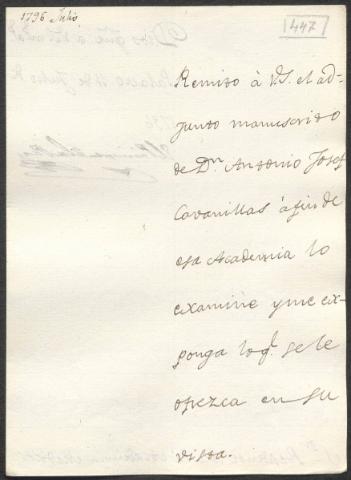 1796 Julio
447
Remito à V.S. el ad-
junto manuscrito
de Dn. Antonio Josef
Cavanillas à fin de
esa Academia lo
examine y me ex-
ponga lo q.e se le
ofrezca en su
vista.